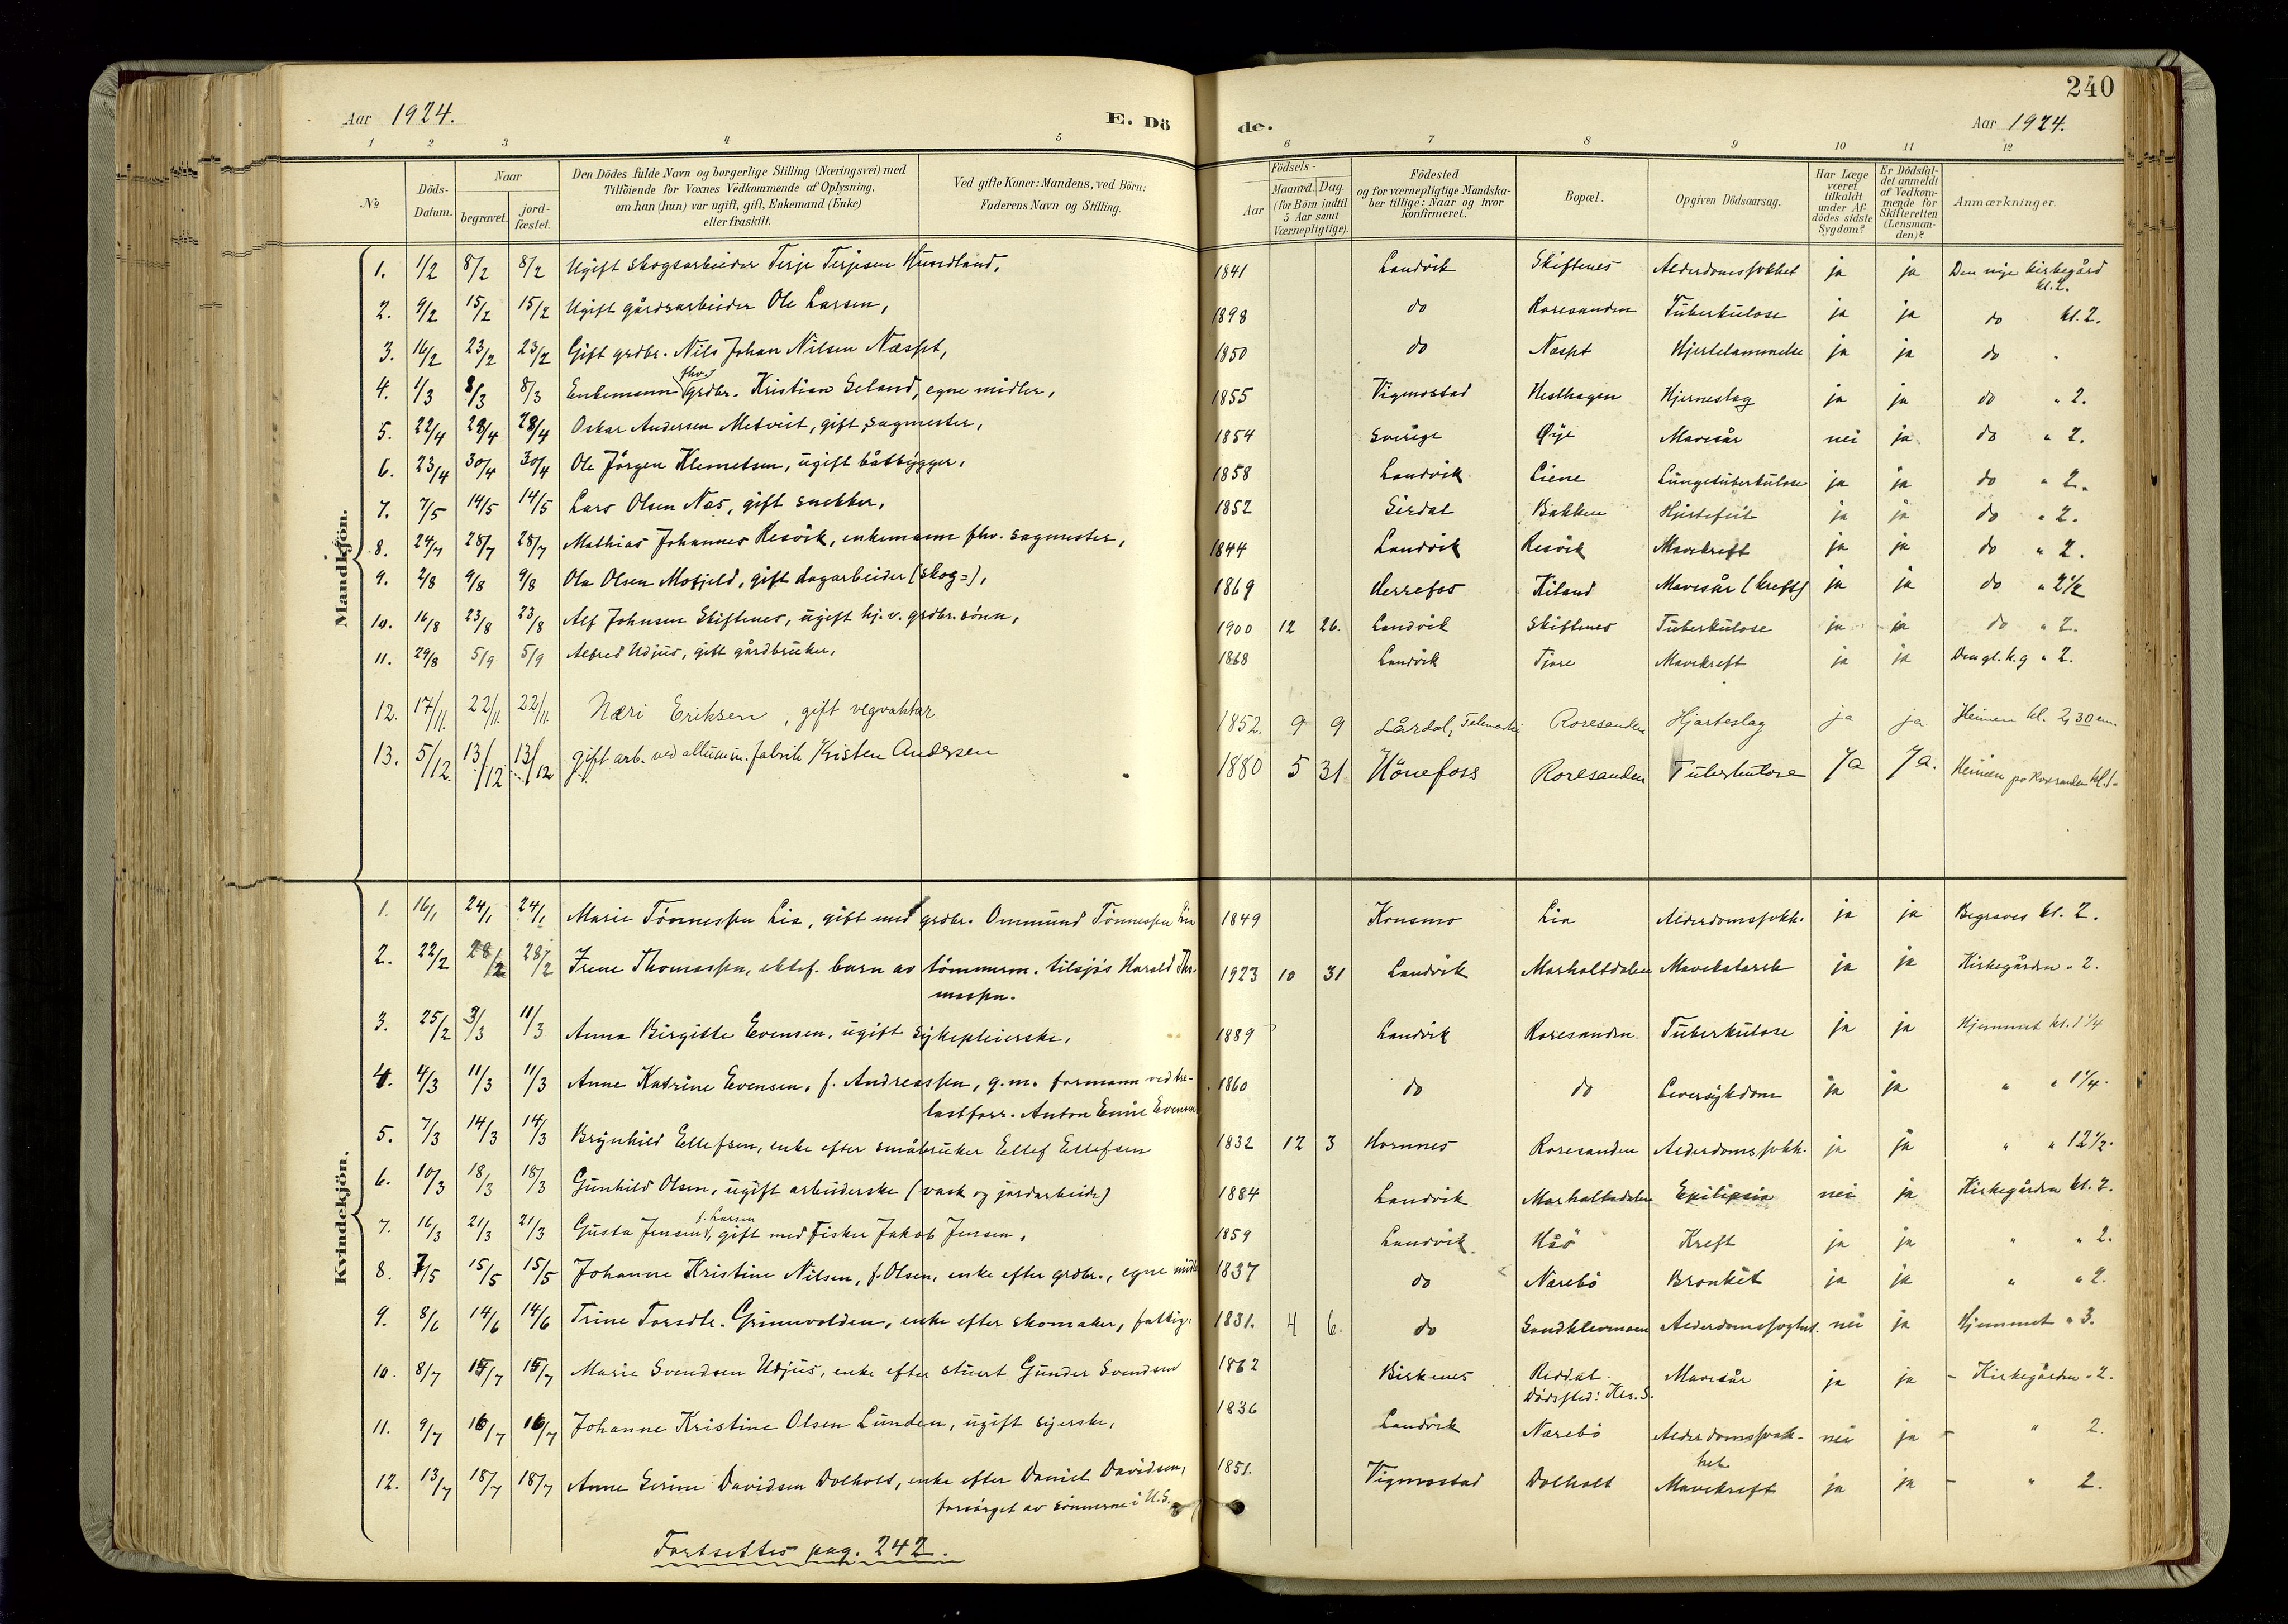 240
Aar 1924.
E. Dö
de.
Aar 1924.
1 2 3 4 5 6 7 8 9 10 11 12
№
Döds-Datum.
Naar
begravet.
jord-fæstet.
Den Dödes fulde Navn og borgerlige Stilling (Næringsvei) med
Tilföiende for Voxnes Vedkommende af Oplysning,
om han (hun) var ugift, gift, Enkemand (Enke)
eller fraskilt.
Ved gifte Koner: Mandens, ved Börn:
Faderens Navn og Stilling.
Aar
Födsels-
Maaned. Dag.
(for Börn indtil
5 Aar samt
Værnepligtige).
Födested
og for værnepligtige Mandska-
ber tillige: Naar og hvor
konfirmeret.
Bopæl.
Opgiven Dödsaarsag.
Har Læge
været
tilkaldt
under Af-
dödes sidste
Sygdom?
Er Dödsfal-
det anmeldt
af Vedkom-
mende for
Skifteretten
(Lensman-
den)?
Anmærkninger.
Mandkjön.
1. 1/2 8/2 8/2 Ugift skogsarbeider Terje Terjesen Hundland, 1841 Landvik Skiftenes Alderdomssvakhet ja ja Den nye kirkegård kl. 2.
2. 9/2 15/2 15/2 Ugift gårdsarbeider Ole Larsen, 1898 do Roresanden Tuberkulose ja ja do kl. 2.
3. 16/2 23/2 23/2 Gift grdbr. Nils Johan Nilsen Næsset, 1850 do Næsset Hjertelammelse ja ja do "
4. 1/3 8/3 8/3 Enkemann fhv. grdbr. Kristian Eeland, egne midler, 1855 Vigmostad Hesthagen Hjerneslag ja ja do " 2.
5. 22/4 28/4 28/4 Oskar Andersen Metveit, gift sagmester, 1854 Sverige Øye Mavesår nei ja do " 2.
6. 23/4 30/4 30/4 Ole Jörgen Klemetsen, ugift båtbygger, 1858 Landvik Liene Lungetuberkulose ja ja do " 2.
7. 7/5 14/5 14/5 Lars Olsen Næs, gift snekker, 1852 Sirdal Bakken Hjertefeil ja ja do " 2.
8. 24/7 28/7 28/7 Mathias Johannes Resvik, enkemann fhv. sagmester, 1844 Landvik Resvik Mavekreft ja ja do " 2.
9. 2/8 9/8 9/8 Ola Olsen Mosfjeld, gift dagarbeider (skog=), 1869 Herrefos Kiland Mavesår (kreft) ja ja do " 2 1/2
10. 16/8 23/8 23/8 Alf Johnsen Skiftenes, ugift hj.v. grdbr. sönn, 1900 12 26. Landvik Skiftenes Tuberkulose ja ja do " 2.
11. 29/8 5/9 5/9 Alfred Udjus, gift gårdbruker, 1868 Landvik Tjore Mavekreft ja ja Den gl. k.g " 2.
12. 17/11. 22/11. 22/11. Næri Eriksen, gift vegvaktar 1852. 9 9 Lårdal, Telemark Roresanden Hjarteslag ja ja Heimen kl. 2,30 em.
13. 5/12. 13/12 13/12 gift arb. ved allumin. fabrik Kristen Andersen 1880 5 31 Hönefoss Roresanden Tuberkulose Ja Ja. Heimen på Roresanden kl. 1-
Kvindekjön.
1. 16/1 24/1 24/1 Marie Tönnessen Lia, gift med grdbr. Ommund Tönnessen Lia 1849 Konsmo Lia Alderdomssvakh. ja ja Begraves kl. 2.
2. 22/2 28/2 28/2 Irene Thomassen, ektef. barn av tömmerm. tilsjös Harald Tho-
massen. 1923 10 31 Landvik Morholtdalen Mavekatarrh ja ja Kirkegården " 2.
3. 25/2 3/3 11/3 Anna Birgitte Evensen, ugift sykepleierske, 1889 Landvik Roresanden Tuberkulose ja ja Hjemmet kl. 1 1/4
4. 4/3 11/3 11/3 Anne Katrine Evensen, f. Andreassen, g.m. formann ved tre-
lastforr. Anton Emil Evensen 1860 do do Leversykdom ja ja " " 1 1/4.
5. 7/3 14/3 14/3 Brynhild Ellefsen, enke efter småbruker Ellef Ellefsen 1832 12 3 Hornnes Roresanden Alderdomssvakh. ja ja " " 12 1/2.
6. 10/3 18/3 18/3 Gunhild Olsen, ugift arbeiderske (vask og jordarbeide) 1884 Landvik Morholtsdalen Epilipsia nei ja Kirkegården kl. 2.
7. 16/3 21/3 21/3 Gusta Jensen f. Larsen, gift med fisker Jakob Jensen, 1859 Landvik Håö Kreft ja ja " " 2.
8. 7/5 15/5 15/5 Johanne Kristine Nilsen, f. Olsen, enke efter grdbr., egne midler 1837 do Nærebö Bronkit ja ja " " 2.
9. 8/6 14/6 14/6 Trine Torsdtr. Grimevolden, enke efter skomaker, fattig. 1831. 4 6. do Sandklevmoen Alderdomssvaghet. nei ja Hjemmet " 3.
10. 8/7 15/7 15/7 Marie Svendsen Udjus, enke efter stuert Gunder Svendsen 1862 Birkenes Reddal
Dödssted: Krs. S. Mavesår ja ja - Kirkegården " 2.
11. 9/7 16/7 16/7 Johanne Kristine Olsen Lunden, ugift syerske, 1836 Landvik Nærebö Alderdomssvak-
het nei ja - " 2.
12. 13/7 18/7 18/7 Anne Serine Davidsen Dolholt, enke efter Daniel Davidsen,
forsörget av sönnerne i U.S. 1851. Vigmostad Dolholt Mavekreft ja ja - " 2.
Fortsettes pag. 242.